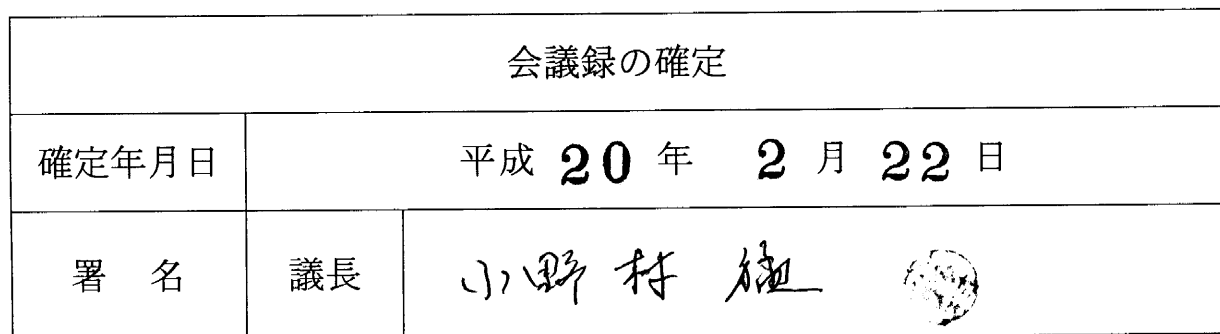 会議録の確定
確定年月日 平成 20 年 2 月 22 日
署 名 議長 小野村